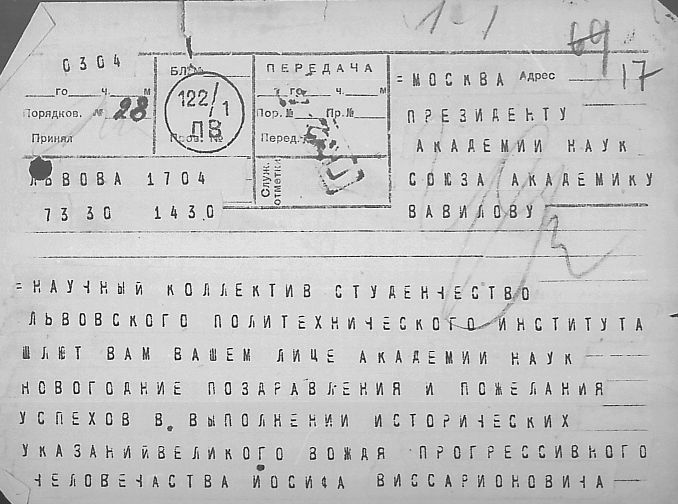 1-1
69
17
0304
го ч. м
Порядков. № 28
Принял
БЛ. №
122/1
ПВ
Пров. №
ПЕРЕДАЧА
го ч. м
Пор. № Пр. №
Перед.
Служ. отметки
ЛЬВОВА 1704
73 30 1430
Адрес
=МОСКВА
ПРЕЗИДЕНТУ
АКАДЕМИИ НАУК
СОЮЗА АКАДЕМИКУ
ВАВИЛОВУ
=НАУЧНЫЙ КОЛЛЕКТИВ СТУДЕНЧЕСТВО
ЛЬВОВСКОГО ПОЛИТЕХНИЧЕСКОГО ИНСТИТУТА
ШЛЮТ ВАМ ВАШЕМ ЛИЦЕ АКАДЕМИИ НАУК
НОВОГОДНИЕ ПОЗДРАВЛЕНИЯ И ПОЖЕЛАНИЯ
УСПЕХОВ В ВЫПОЛНЕНИИ ИСТОРИЧЕСКИХ
УКАЗАНИЙВЕЛИКОГО ВОЖДЯ ПРОГРЕССИВНОГО
ЧЕЛОВЕЧАСТВА ИОСИФА ВИССАРИОНОВИЧА